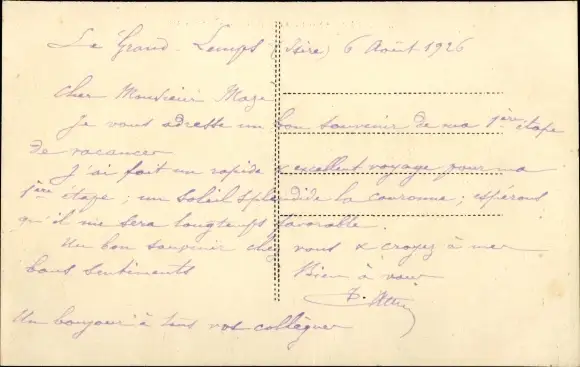 Le Grand-Lemps (Isère) 6 Août 1926
Cher Monsieur Maze
Je vous adresse un bon souvenir de ma 1ère étape
de vacances
J'ai fait un rapide & excellent voyage pour ma
1ère étape ; un soleil splendide la couronne ; espérons
qu'il me sera longtemps favorable.
Un bon souvenir chez vous & croyez à mes
bons sentiments Bien à vous
Un bonjour à tous vos collègues